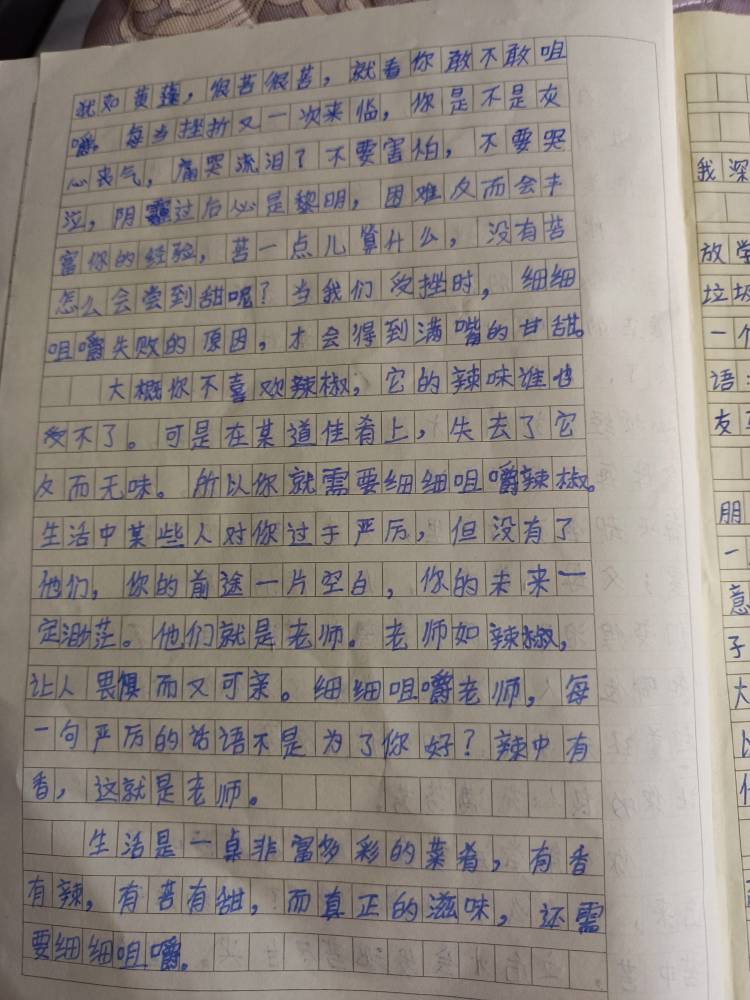 犹如黄莲，很苦很苦，就看你敢不敢咀
嚼。每当挫折又一次来临，你是不是灰
心丧气，痛哭流泪？不要害怕，不要哭
泣，阴霾过后必是黎明，困难反而会丰
富你的经验，苦一点儿算什么，没有苦
怎么会尝到甜呢？当我们受挫时，细细
咀嚼失败的原因，才会得到满嘴的甘甜。
大概你不喜欢辣椒，它的辣味谁也
受不了。可是在某道佳肴上，失去了它
反而无味。所以你就需要细细咀嚼辣椒。
生活中某些人对你过于严厉，但没有了
他们，你的前途一片空白，你的未来一
定渺茫。他们就是老师。老师如辣椒，
让人畏惧而又可亲。细细咀嚼老师，每
一句严厉的话语不是为了你好？辣中有
香，这就是老师。
生活是一桌非富多彩的菜肴，有香
有辣，有苦有甜，而真正的滋味，还需
要细细咀嚼。
我深
放学
垃圾
一个
语
友
朋
一
意
子
大